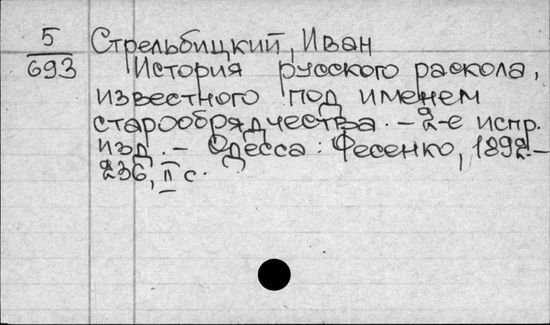 5
693
Стрельбицкий, Иван
История русского раскола,
известного под именем
старообрядчества. – 2-е испр.
изд. – Одесса: Фесенко, 1892. –
236, II с.